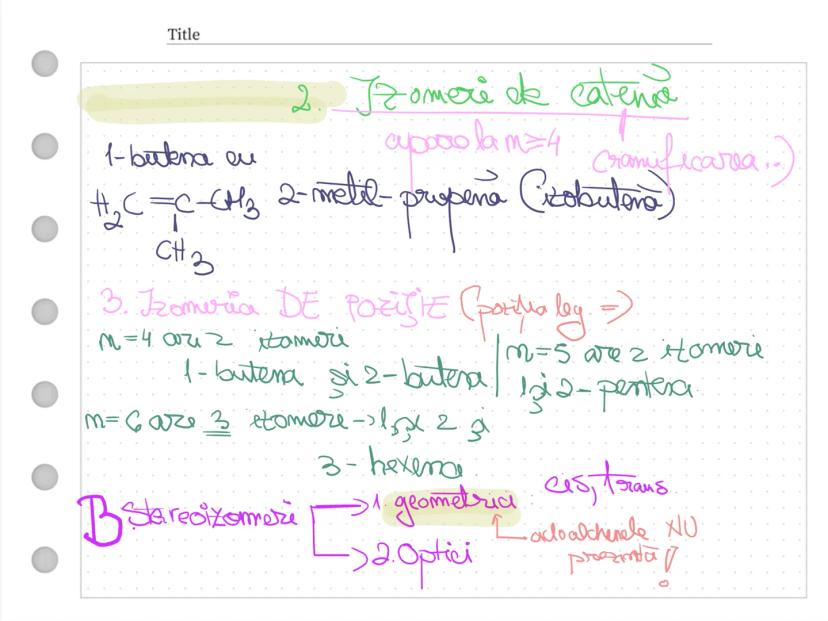 Title
2. Izomeri de catenă
apare la n≥4
(ramificarea..)
1-butena cu
H2C=C-CH3 2-metil-propenă (izobutenă)
CH3
3. Izomeria DE POZIȚIE (poziția leg =)
n=4 are 2 izomeri
1-butena și 2-butena
n=5 are 2 izomeri
1 și 2-pentena
n=6 are 3 izomeri -> 1 și 2 și
3-hexena
B Stereoizomeri
1. geometrici
cis, trans
cicloalchenele NU
prezintă!
2. Optici